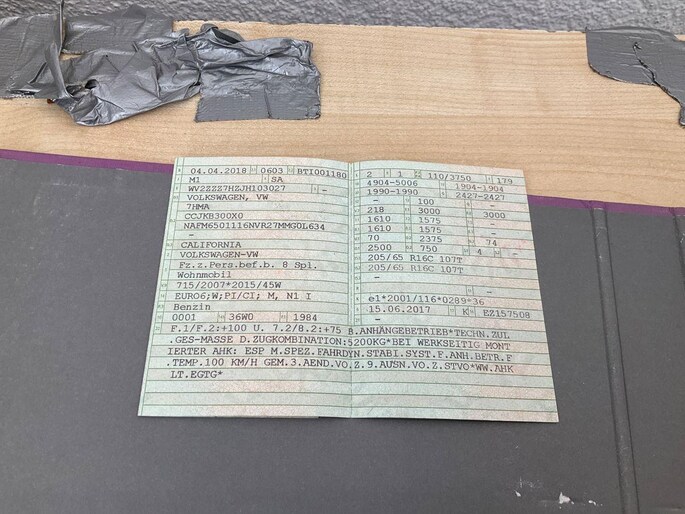 04.04.2018 0603 BTI001180
M1 SA
WV2ZZZ7HZJH103027 -
VOLKSWAGEN, VW
7HMA
CCJKB300X0
NAFM6501116NVR27MMG0L634
-
CALIFORNIA
VOLKSWAGEN-VW
Fz.z.Pers.bef.b. 8 Spl.
Wohnmobil
715/2007*2015/45W
EURO6;W;PI/CI; M, N1 I
Benzin
0001 36W0 1984
2 1 110/3750 179
4904-5006 1904-1904
1990-1990 2427-2427
- 100 -
218 3000 3000
1610 1575 -
1610 1575 -
70 2375 74
2500 750 4 -
205/65 R16C 107T
205/65 R16C 107T
-
-
e1*2001/116*0289*36
15.06.2017 K EZ157508
-
F.1/F.2:+100 U. 7.2/8.2:+75 B.ANHÄNGEBETRIEB*TECHN.ZUL
.GES-MASSE D.ZUGKOMBINATION:5200KG*BEI WERKSEITIG MONT
IERTER AHK: ESP M.SPEZ.FAHRDYN.STABI.SYST.F.ANH.BETR.F
.TEMP.100 KM/H GEM.3.AEND.VO.Z.9.AUSN.VO.Z.STVO*WW.AHK
LT.EGTG*